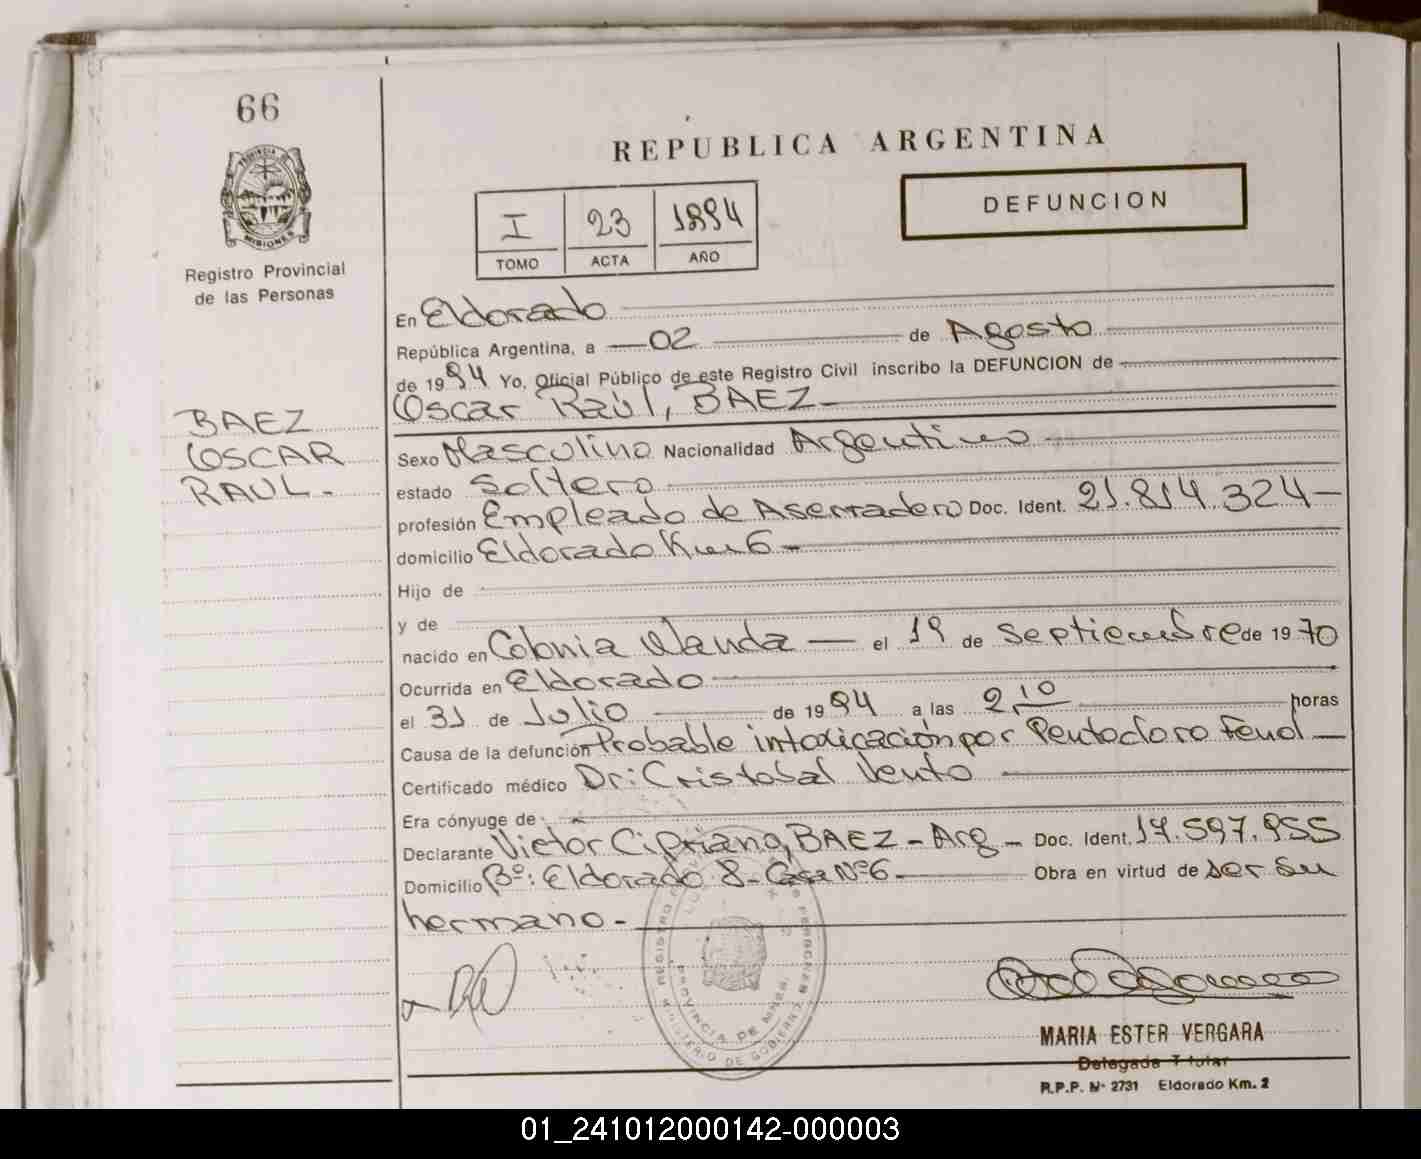 66
REPUBLICA ARGENTINA
PROVINCIA DE
MISIONES
Registro Provincial
de las Personas
I 23 1994
TOMO ACTA AÑO
DEFUNCION
En Eldorado
República Argentina, a 02 de Agosto
de 1994 Yo, Oficial Público de este Registro Civil inscribo la DEFUNCION de
Oscar Raúl, BAEZ
BAEZ
OSCAR
RAUL.-
Sexo Masculino Nacionalidad Argentino
estado Soltero
profesión Empleado de Aserradero Doc. Ident. 21.814.324-
domicilio Eldorado Km 6-
Hijo de
y de
nacido en Colonia Wanda el 19 de Septiembre de 1970
Ocurrida en Eldorado
el 31 de Julio de 1994 a las 2,10 horas
Causa de la defunción Probable intoxicación por Pentocloro Fenol
Certificado médico Dr: Cristobal Vento
Era cónyuge de
Declarante Victor Cipriano, BAEZ - Arg - Doc. Ident. 17.597.955
Domicilio Bº: Eldorado 8- Casa Nº6 Obra en virtud de ser su
hermano.-
MARIA ESTER VERGARA
Delegada Titular
R.P.P. Nº 2731 Eldorado Km. 2
01_241012000142-000003